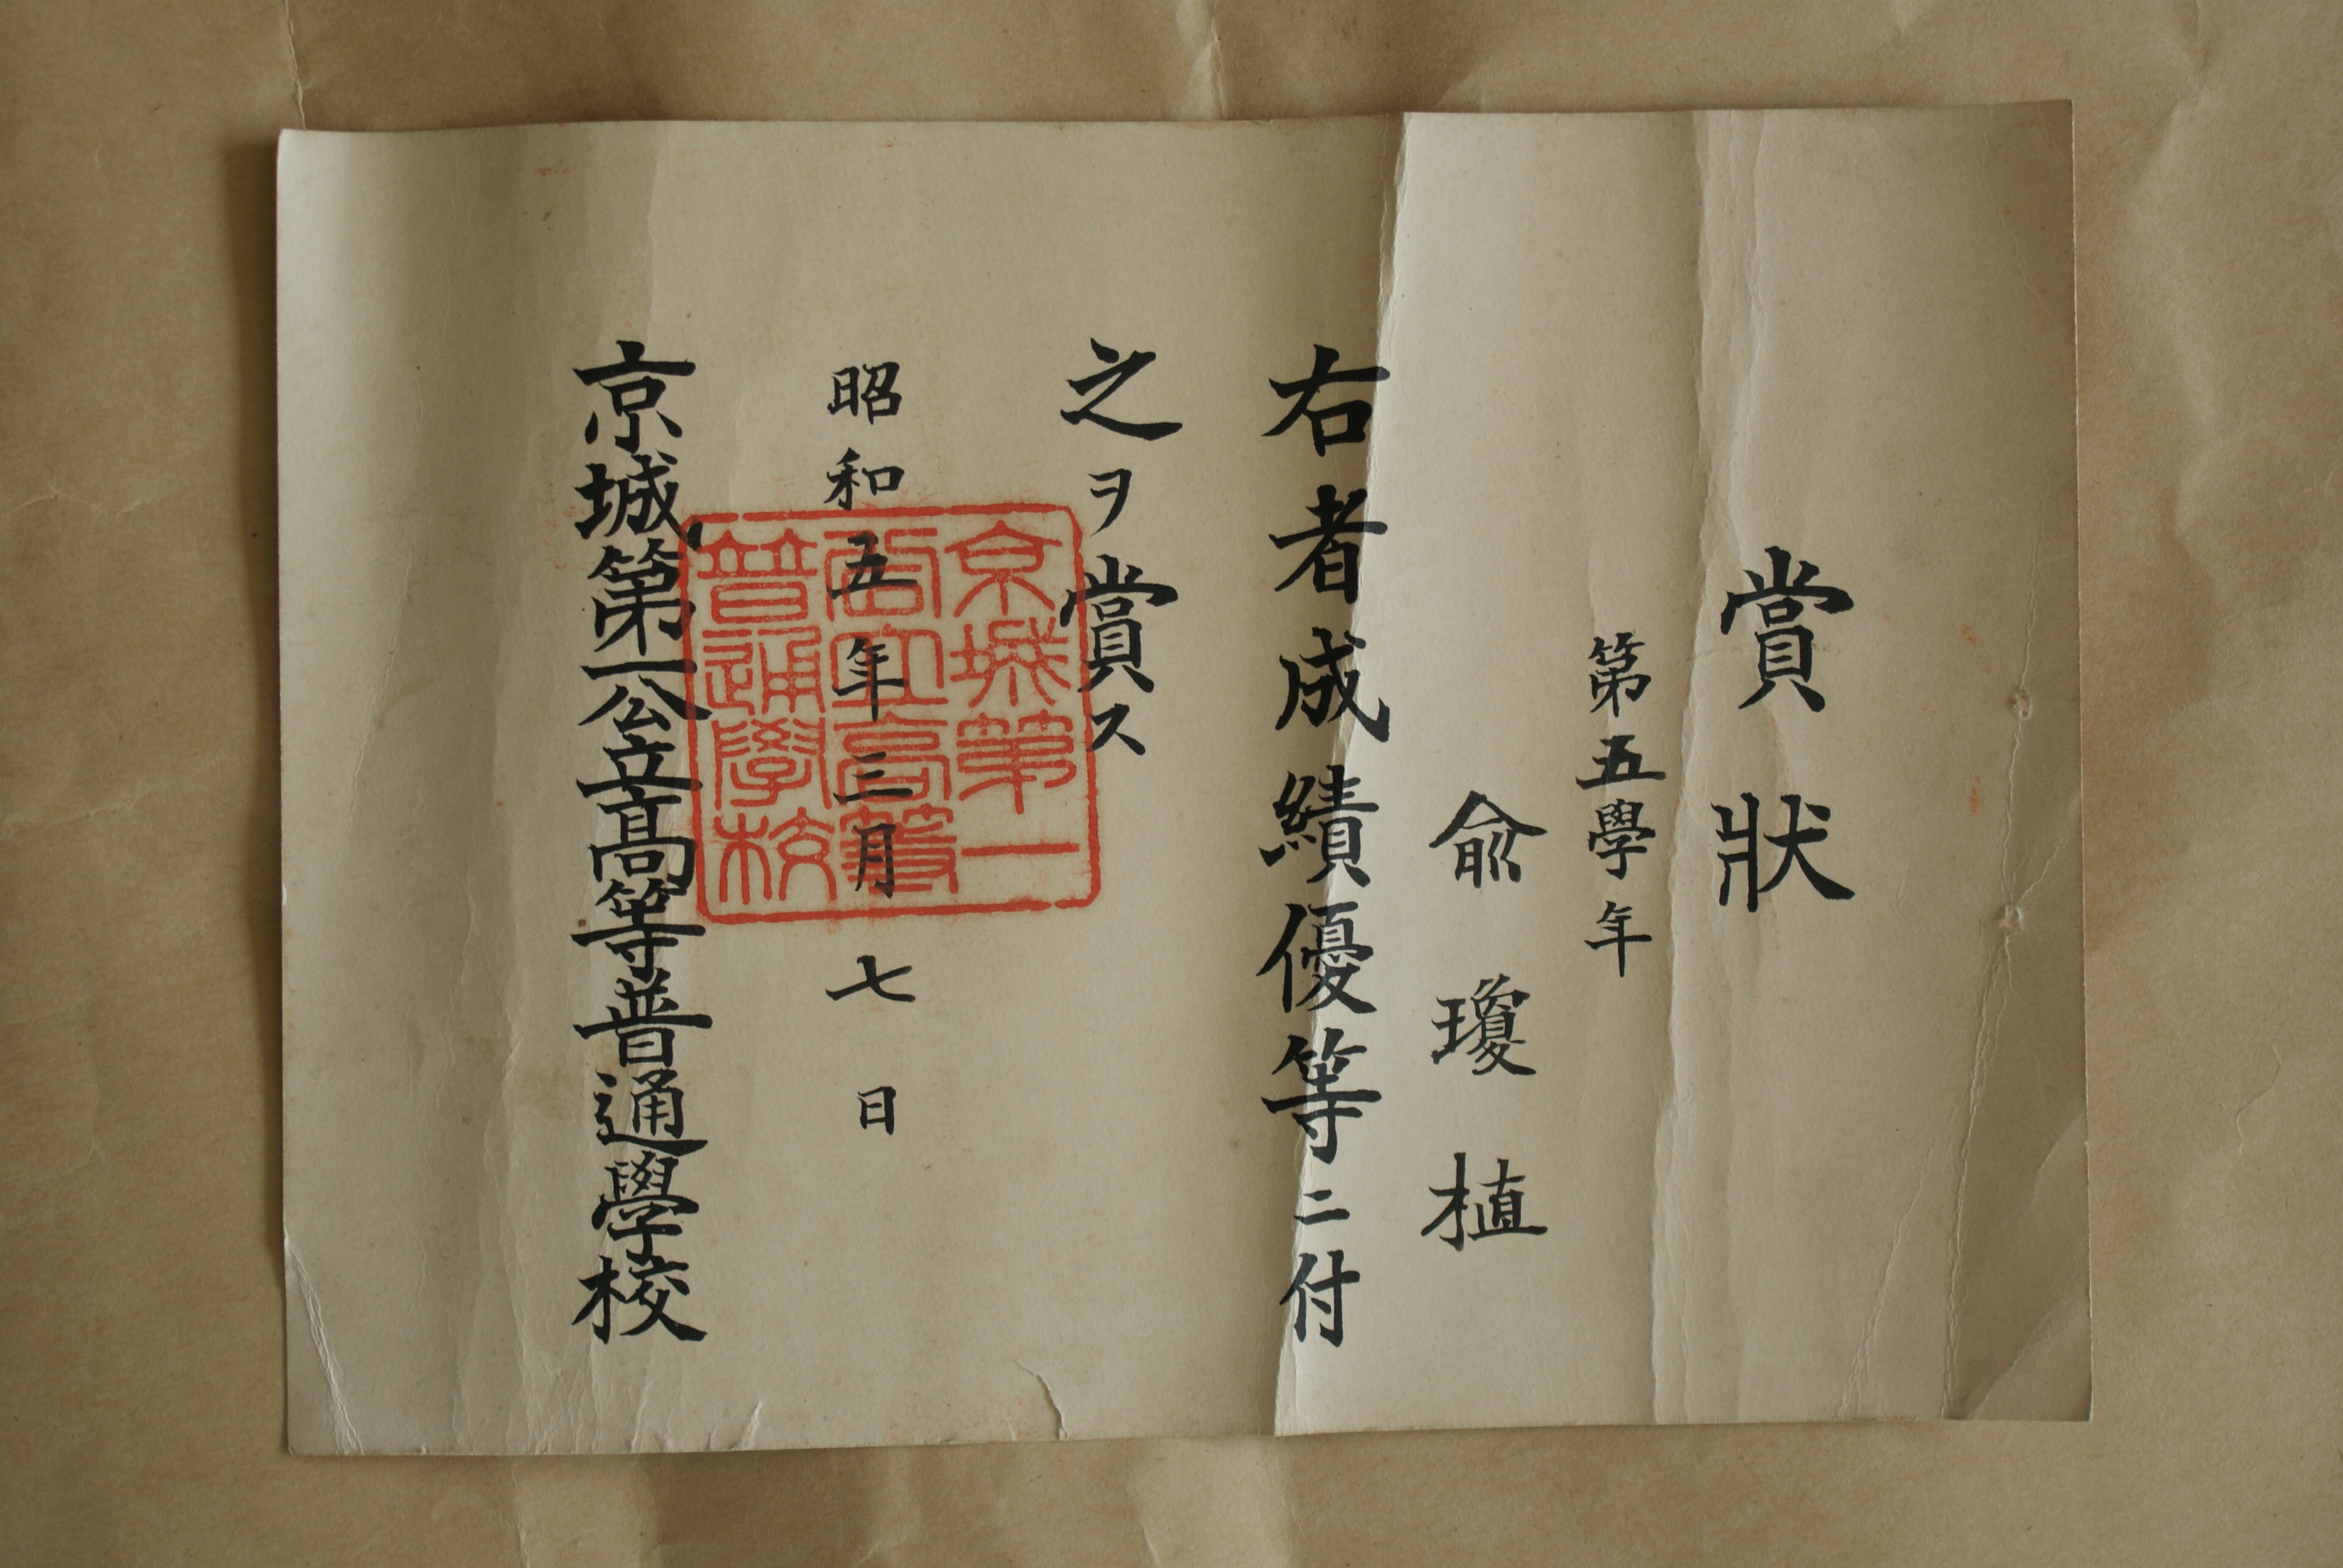 賞狀
第五學年
兪瓊植
右者成績優等ニ付
之ヲ賞ス
昭和五年三月七日
京城第一公立高等普通學校
京城第一
公立高等
普通學校